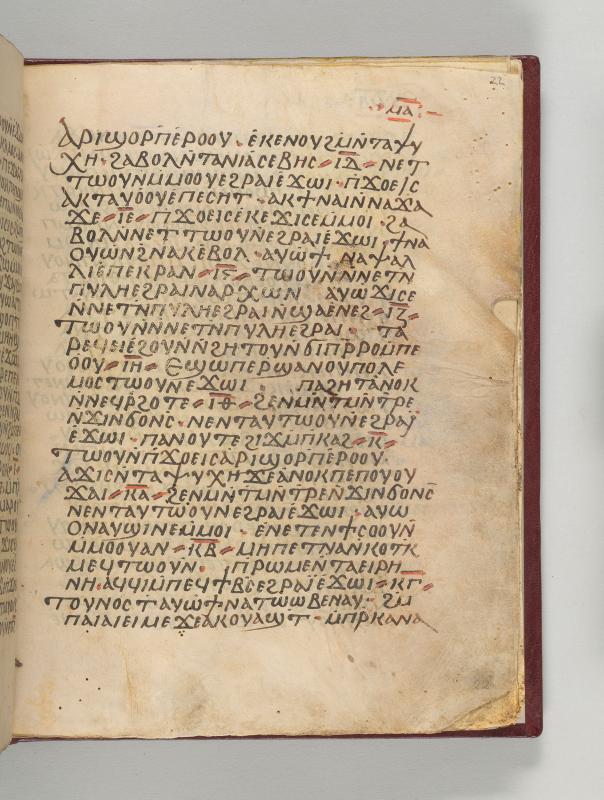 22
ⲙⲁ
ⲁⲣⲓϣⲟⲣⲡⲉⲣⲟⲟⲩ · ⲉⲕⲉⲛⲟⲩϩⲙⲛⲧⲁⲯⲩ
ⲭⲏ · ϩⲁⲃⲟⲗⲛⲧⲁⲛⲓⲁⲥⲉⲃⲏⲥ ⲓⲇ ⲛⲉⲧ
ⲧⲱⲟⲩⲛⲙⲙⲟⲟⲩⲉϩⲣⲁⲓⲉϫⲱⲓ · ⲡϫⲟⲉⲓⲥ
ⲁⲕⲧⲁⲩⲟⲟⲩⲉⲡⲉⲥⲏⲧ · ⲁⲕϯⲛⲁⲓⲛⲛⲁϫⲁ
ϫⲉ ⲓⲉ ⲡϫⲟⲉⲓⲥⲉⲕⲉϫⲓⲥⲉⲙⲙⲟⲓ · ϩⲁ
ⲃⲟⲗⲛⲛⲉⲧⲧⲱⲟⲩⲛⲉϩⲣⲁⲓⲉϫⲱⲓ · ϯⲛⲁ
ⲟⲩⲱⲛϩⲛⲁⲕⲉⲃⲟⲗ · ⲁⲩⲱϯⲛⲁⲯⲁⲗ
ⲗⲓⲉⲡⲉⲕⲣⲁⲛ ⲓⲋ ⲧⲱⲟⲩⲛⲛⲛⲉⲧⲛ
ⲡⲩⲗⲏⲉϩⲣⲁⲓⲛⲁⲣⲭⲱⲛ ⲁⲩⲱϫⲓⲥⲉ
ⲛⲛⲉⲧⲛⲡⲩⲗⲏⲉϩⲣⲁⲓⲛϣⲁⲉⲛⲉϩ ⲓⲍ
ⲧⲱⲟⲩⲛⲛⲛⲉⲧⲛⲡⲩⲗⲏⲉϩⲣⲁⲓ · ⲧⲁ
ⲣⲉϥⲉⲓⲉϩⲟⲩⲛⲛϩⲏⲧⲟⲩⲛϭⲓⲡⲣⲣⲟⲙⲡⲉ
ⲟⲟⲩ ⲓⲏ ⲉϣⲱⲡⲉⲣϣⲁⲛⲟⲩⲡⲟⲗⲉ
ⲙⲟⲥⲧⲱⲟⲩⲛⲉϫⲱⲓ · ⲡⲁϩⲏⲧⲁⲛⲟⲕ
ⲛⲛⲉϥⲣϩⲟⲧⲉ ⲓⲑ ϩⲉⲛⲙⲛⲧⲙⲛⲧⲣⲉ
ⲛϫⲓⲛϭⲟⲛⲥ · ⲛⲉⲛⲧⲁⲩⲧⲱⲟⲩⲛⲉϩⲣⲁⲓ
ⲉϫⲱⲓ · ⲡⲁⲛⲟⲩⲧⲉϩⲓϫⲙⲡⲕⲁϩ ⲕ
ⲧⲱⲟⲩⲛⲡϫⲟⲉⲓⲥⲁⲣⲓϣⲟⲣⲡⲉⲣⲟⲟⲩ·
ⲁϫⲓⲥⲛⲧⲁⲯⲩⲭⲏϫⲉⲁⲛⲟⲕⲡⲉⲡⲟⲩⲟⲩ
ϫⲁⲓ ⲕⲁ ϩⲉⲛⲙⲛⲧⲙⲛⲧⲣⲉⲛϫⲓⲛϭⲟⲛⲥ
ⲛⲉⲛⲧⲁⲩⲧⲱⲟⲩⲛⲉϩⲣⲁⲓⲉϫⲱⲓ · ⲁⲩⲱ
ⲟⲛⲁⲩϣⲓⲛⲉⲙⲙⲟⲓ · ⲉⲛⲉⲧⲉⲛϯⲥⲟⲟⲩⲛ
ⲙⲙⲟⲟⲩⲁⲛ ⲕⲃ ⲙⲏⲡⲉⲧⲛⲁⲛⲕⲟⲧⲕ
ⲙⲉϥⲧⲱⲟⲩⲛ · ⲡⲣⲱⲙⲉⲛⲧⲁⲉⲓⲣⲏ
ⲛⲏ·ⲁϥϥⲓⲙⲡⲉϥϯⲃⲥⲉϩⲣⲁⲓⲉϫⲱⲓ ⲕⲅ
ⲧⲟⲩⲛⲟⲥⲧⲁⲩⲱϯⲛⲁⲧⲱⲱⲃⲉⲛⲁⲩ· ϩⲙ
ⲡⲁⲓⲁⲓⲉⲓⲙⲉϫⲉⲁⲕⲟⲩⲁϣⲧ · ⲙⲡⲣⲕⲁⲛⲁ